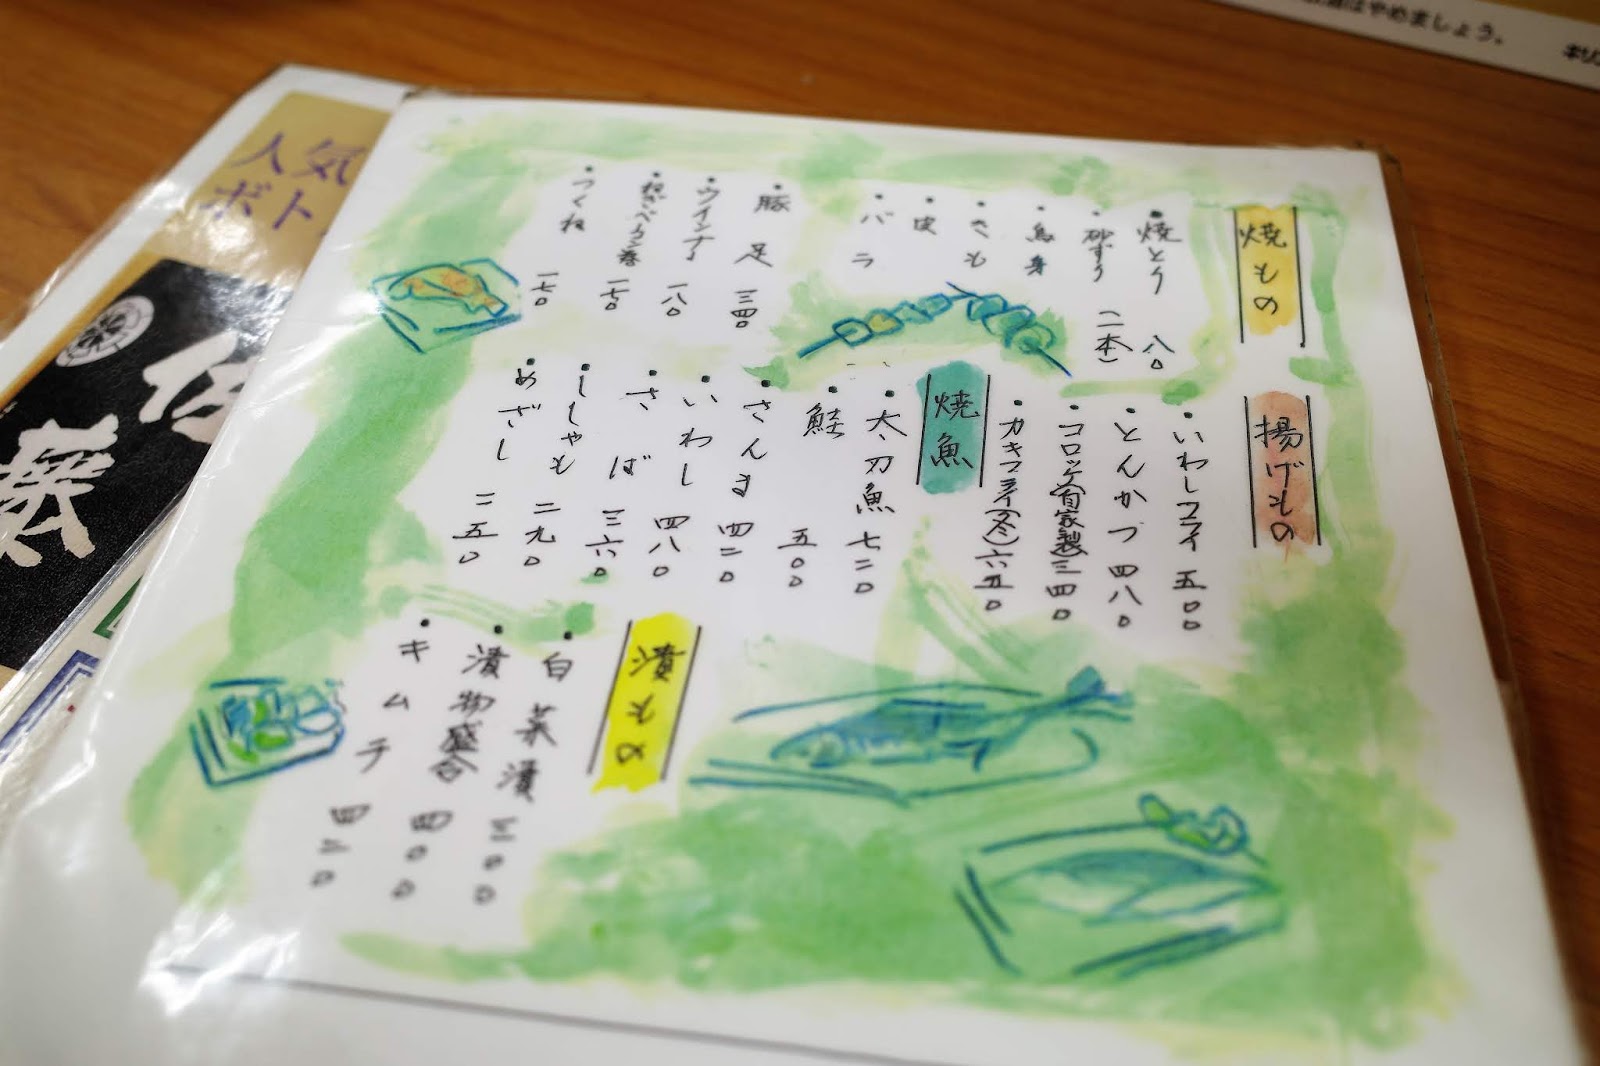 焼もの
・焼とり 八〇
・砂ずり (二本)
・鳥身
・きも
・皮
・バラ
・豚足 三四〇
・ウインナー 一八〇
・ベーコン巻 一七〇
・つくね 一七〇
揚げもの
・いわしフライ 五〇〇
・とんかつ 四八〇
・コロッケ(自家製)三四〇
・カキフライ(冬)六五〇
焼魚
・太刀魚 七二〇
・鮭 五〇〇
・さんま 四二〇
・いわし 四八〇
・さば 三六〇
・ししゃも 二九〇
・めざし 二五〇
漬もの
・白菜漬 三〇〇
・漬物盛合 四〇〇
・キムチ 四二〇
人気
ボト
はやめましょう。
キリン